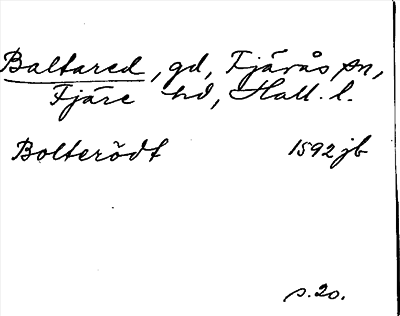 Baltared, gd, Fjärås sn,
Fjäre hd, Hall. l.
Bolterödt 1592 jb
s. 20.